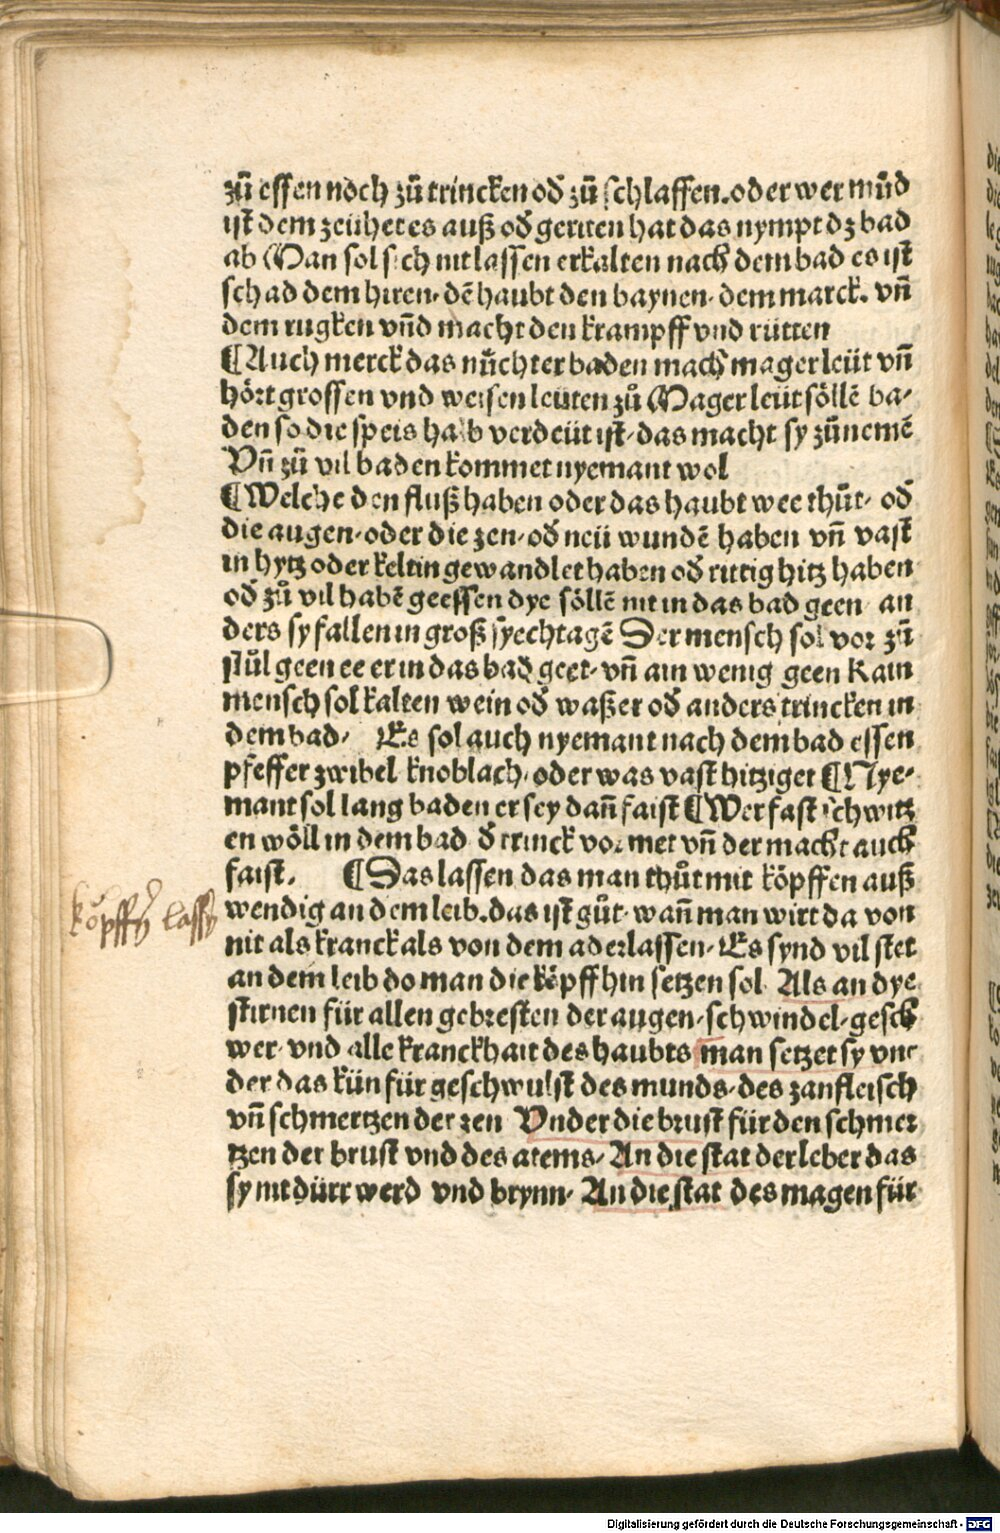 zů essen noch zů trincken od̄ zů schlaffen. oder wer můd
ist dem zeühet es auß od̄ geriten hat das nympt dz bad
ab Man sol sich nit lassen erkalten nach dem bad es ist
schad dem hiren· dē haubt den baynen· dem marck. vn̄
dem rugken vn̄d macht den krampff vnd rütten
¶ Auch merck das nůchter baden mach mager leüt vn̄
hört grossen vnd weisen leüten zů Mager leüt söllē ba⸗
den so die speis halb verdeüt ist· das macht sy zůnemē
Vn̄ zů vil baden kommet nyemant wol
¶ Welche den fluß haben oder das haubt wee thůt· od̄
die augen· oder die zen· od̄ neü wundē haben vn̄ vast
in hytz oder kelt in gewandlet haben od̄ rittig hitz haben
od̄ zů vil habē geessen dye söllē nit in das bad geen an
ders sy fallen in groß syechtagē Der mensch sol vor zů
stůl geen ee er in das bad geet· vn̄ ain wenig geen Kain
mensch sol kalten wein od̄ waßer od̄ anders trincken in
dem bad· Es sol auch nyemant nach dem bad essen
pfeffer zwibel knoblach· oder was vast hitziget ¶ Nye⸗
mant sol lang baden er sey dan̄ faist ¶ Wer fast schwitz
en wöll in dem bad d̄ trinck vor met vn̄ der macht auch
faist. ¶ Das lassen das man thůt mit köpffen auß
wendig an dem leib. das ist gůt· wan̄ man wirt da von
nit als kranck als von dem aderlassen· Es synd vil stet
an dem leib do man die köpff hin setzen sol Als an dye
stirnen für allen gebresten der augen· schwindel· gesch
wer· vnd alle kranckhait des haubts man setzet sy vnd
der das kün für geschwulst des munds· des zanfleisch
vn̄ schmertzen der zen Vnder die brust für den schmer
tzen der brust vnd des atems· An die stat der leber das
sy nit dürr werd vnd brynn· An die stat des magen für
köpffen lassen
Digitalisierung gefördert durch die Deutsche Forschungsgemeinschaft - DFG